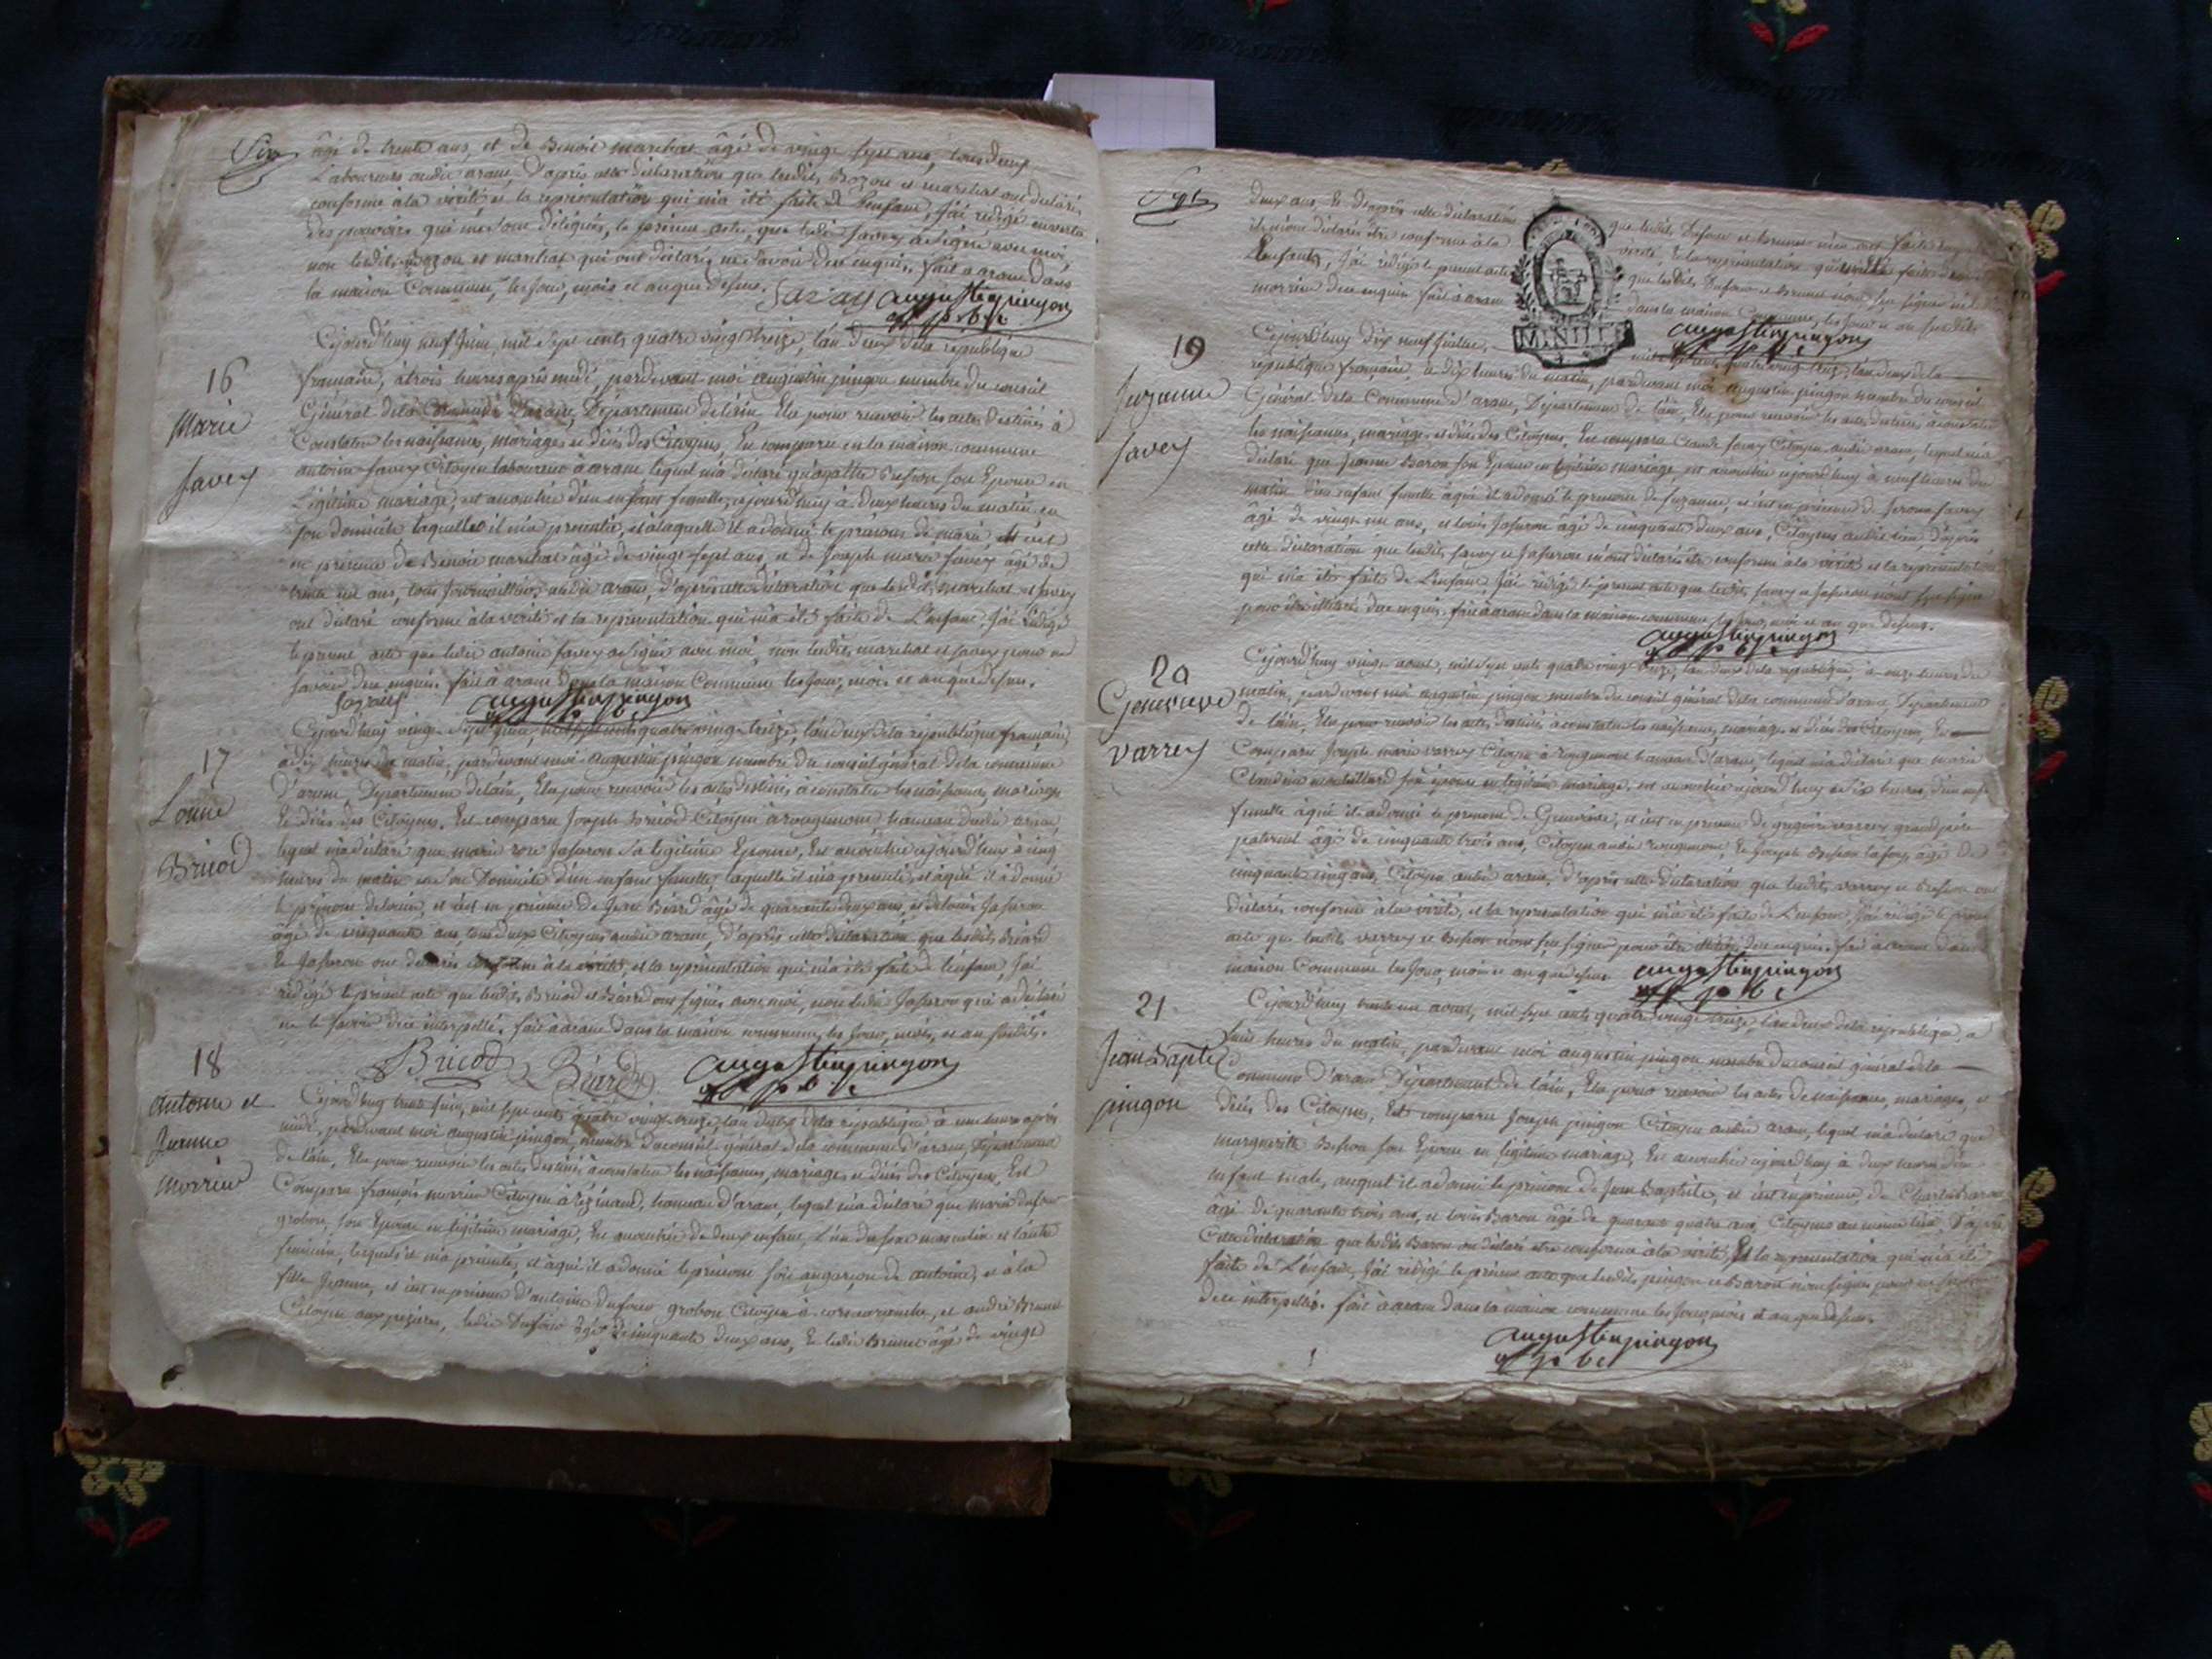 Six
âgé de trente ans, et de Benoit marchat âgé de vingt sept ans, tous deux
Laboureurs audit aranc, d'après cette déclaration que lesdits Bozon et marchat ont déclarés
conforme à la vérité et la représentation qui m'a été faite de l'enfant, j'ai rédigé en vertu
des pouvoirs qui me sont délégués, le présent acte, que ledit savey a signé avec moi,
non lesdits Bozon et marchat qui ont déclaré ne savoir de ce enquis. fait a aranc dans
la maison Commune, les jour, mois et an que dessus. Savay augustin pingon
16
Marie
Savey
Cejourd'huy neuf juin, mil sept cents quatre vingt treize, l'an deux de la république
française, à trois heures après midi, pardevant moi augustin pingon membre du conseil
Général de la Commune d'aranc, Département de l'ain Elu pour recevoir les actes destinés à
Constater les naissances, mariages et décès des Citoyens, Est comparu en la maison commune
antoine Savey Citoyen laboureur à aranc lequel m'a déclaré qu'agathe Besson son Epouse en
Légitime mariage, est accouchée d'un enfant femelle, cejourd'huy à deux heures du matin en
son domicile laquelle il m'a présenté, et a laquelle il a donné le prénom de marie et c'est
en présence de Benoit marchat âgé de vingt sept ans, et de Joseph marie Savey âgé de
trente un ans, tous journailliers audit aranc, d'après cette déclaration que lesdits marchat et Savey
ont déclaré conforme à la vérité et la représentation qui m'a été faite de L'enfant j'ai rédigé
le présent acte que ledit antoine Savey a signé avec moi, non lesdits marchat et Savey pour ne
savoir de ce enquis. fait à aranc dans la maison Commune les jour, mois et an que dessus.
augustin pingon
17
Louise
Bricod
Cejourd'huy vingt sept juin, mil sept cents quatre vingt treize, l'an deux de la république française
à dix heures du matin, pardevant moi augustin pingon membre du conseil général de la commune
D'aranc, Département de l'ain, Elu pour recevoir les actes destinés à constater les naissances, mariages
et décès des Citoyens. Est comparu Joseph Bricod Citoyen à rougemont, hameau dudit aranc,
lequel m'a déclaré que marie rose Jaseron sa légitime Epouse, Est accouchée cejourd'huy à cinq
heures du matin en son Domicile d'un enfant femelle, laquelle il m'a présenté, et à qui il a donné
le prénom de Louise, et c'est en présence de Jean Béard âgé de quarante deux ans, et de Louis Jaseron
âgé de cinquante ans, tous deux Citoyens audit aranc, d'après cette déclaration que lesdits Béard
et Jaseron ont déclarés conforme à la vérité, et la représentation qui m'a été faite de l'enfant, j'ai
rédigé le présent acte que lesdits Bricod et Béard ont signés avec moi, non ledit Jaseron qui a déclaré
ne le savoir de ce interpellé. fait à aranc dans la maison commune, les jour, mois, et an susdits.
Bricod Béard augustin pingon
18
antoine et
Jeanne
Morrier
Cejourd'huy trente juin, mil sept cents quatre vingt treize, l'an deux de la république à une heure après
midi, pardevant moi augustin pingon, membre du conseil général de la commune d'aranc, Département
de l'ain, Elu pour recevoir les actes destinés à constater les naissances, mariages et décès des Citoyens, Est
Comparu françois morrier Citoyen à rézinand, hameau d'aranc, lequel m'a déclaré que marie dufour
grobon, son Epouse en légitime mariage, Est accouchée de deux enfans, l'un du sexe masculin et l'autre
féminin, lesquels il m'a présenté, et à qui il a donné le prénom soit au garçon de antoine, et à la
fille Jeanne, et c'est en présence d'antoine Dufour grobon Citoyen à corcaranche, et andré Brunet
Citoyen aux pézières, ledit Dufour âgé de cinquante deux ans, Et ledit Brunet âgé de vingt
Sept
deux ans, Et d'après cette déclaration que lesdits Dufour et Brunet
et m'ont déclarés être conforme à la vérité, Et la représentation qui m'a été faite
Enfants, j'ai rédigé le présent acte que lesdits Dufour et Brunet n'ont sçu signer ni
morrier de ce enquis fait à aranc dans la maison Commune, les jour et an susdits
augustin pingon
19
Suzanne
Savey
Cejourd'huy dix neuf juillet, mil sept cents quatre vingt treize, l'an deux de la
république française, à dix heures du matin, pardevant moi augustin pingon membre du conseil
Général de la Commune d'aranc, Département de l'ain, Elu pour recevoir les actes destinés à constater
les naissances, mariages et décès des Citoyens, Est comparu Claude Savey Citoyen audit aranc, lequel m'a
déclaré que Jeanne Baron son Epouse en légitime mariage, est accouchée cejourd'huy à neuf heures du
matin d'un enfant femelle à qui il a donné le prénom de Suzanne, et c'est en présence de Jerome Savey
âgé de vingt un ans, et Louis Jaseron âgé de cinquante deux ans, Citoyens audit lieu, d'après
cette déclaration que lesdits Savey et Jaseron m'ont déclarés être conforme à la vérité et la représentation
qui m'a été faite de l'enfant j'ai rédigé le présent acte que lesdits Savey et Jaseron n'ont sçu signer
pour être illitérés de ce enquis. fait à aranc dans la maison commune, les jour, mois et an que dessus.
augustin pingon
20
Genevieve
Varrey
Cejourd'huy vingt aout, mil sept cents quatre vingt treize, l'an deux de la république, à onze heures du
matin, pardevant moi augustin pingon membre du conseil général de la commune d'aranc Département
de l'ain, Elu pour recevoir les actes destinés à constater les naissances, mariages et décès des Citoyens, Est
Comparu Joseph marie varrey Citoyen à rougemont hameau d'aranc, lequel m'a déclaré que marie
Claudine montillard son épouse en légitime mariage, est accouchée cejourd'huy à six heures, d'un enfant
femelle à qui il a donné le prénom de Genevieve, et c'est en présence de gregoire varrey grand père
paternel âgé de cinquante trois ans, Citoyen audit rougemont, Et Joseph Besson âgé de
cinquante cinq ans, Citoyen audit aranc, d'après cette déclaration que lesdits varrey et Besson ont
déclarés conforme à la vérité, et la représentation qui m'a été faite de L'enfant j'ai rédigé le présent
acte que lesdits varrey et Besson n'ont sçu signer pour être illitérés de ce enquis. fait à aranc dans
maison Commune les jour, mois et an que dessus. augustin pingon
21
Jean Bapte
pingon
Cejourd'huy trente un aout, mil sept cents quatre vingt treize, l'an deux de la république, à
huit heures du matin, pardevant moi augustin pingon membre du conseil général de la
Commune D'aranc Département de l'ain, Elu pour recevoir les actes de naissances, mariages, et
décès des Citoyens, Est comparu Joseph pingon Citoyen audit aranc, lequel m'a déclaré que
marguerite Besson son Epouse en légitime mariage, Est accouchée cejourd'huy à deux heures d'un
enfant male, auquel il a donné le prénom de Jean Baptiste, et c'est en présence, de Charles Baron
âgé de quarante trois ans, et Louis Baron âgé de quarante quatre ans, Citoyens au même lieu, D'après
Cette déclaration que lesdits Baron ont déclaré être conforme à la vérité, Et la représentation qui m'a été
faite de L'enfant, j'ai rédigé le présent acte que lesdits pingon et Baron n'ont signés pour ne savoir
de ce interpellés. fait à aranc dans la maison commune les jour, mois et an que dessus.
augustin pingon